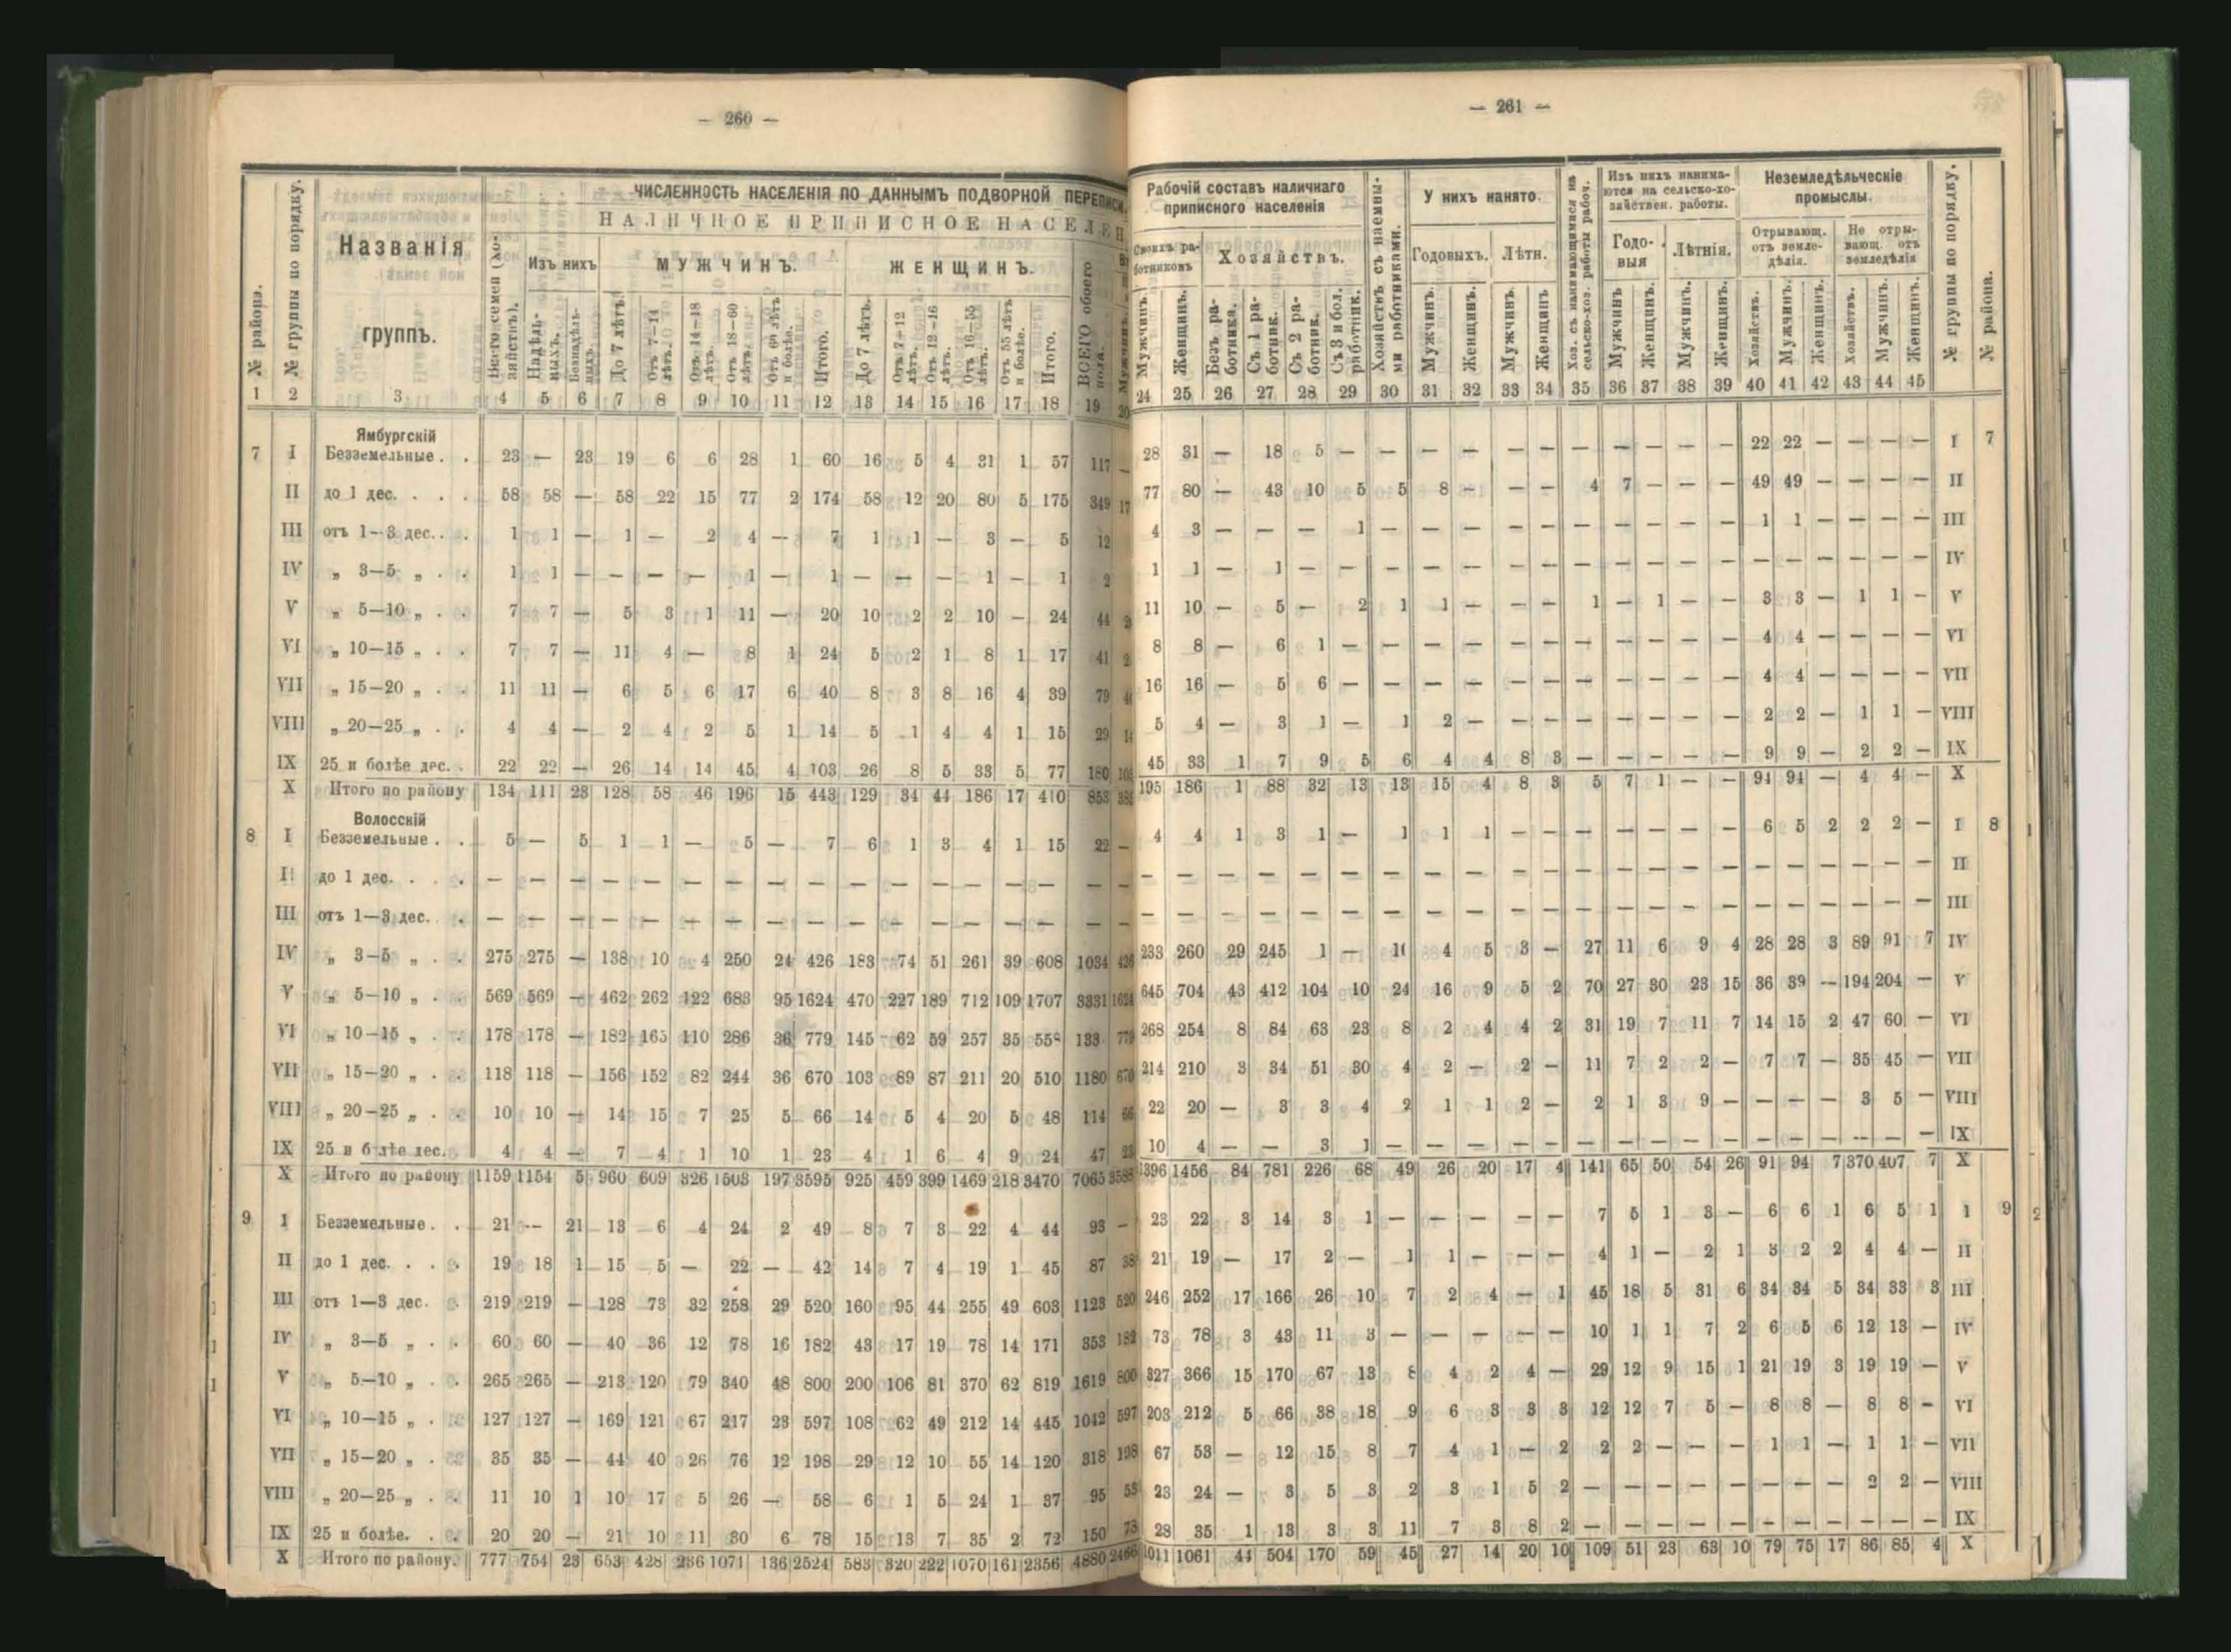 — 260 —
ЧИСЛЕННОСТЬ НАСЕЛЕНІЯ ПО ДАННЫМЪ ПОДВОРНОЙ ПЕРЕПИСИ.
НАЛИЧНОЕ ПРИПИСНОЕ НАСЕЛЕН
№ района.
№ группы по порядку.
Названія
группъ.
Всего семей (хозяйствъ).
Изъ нихъ
Надѣльныхъ.
Безнадѣльныхъ.
МУЖЧИНЪ.
До 7 лѣтъ.
Отъ 7—14 лѣтъ.
Отъ 14—18 лѣтъ.
Отъ 18—60 лѣтъ.
Отъ 60 лѣтъ и болѣе.
Итого.
ЖЕНЩИНЪ.
До 7 лѣтъ.
Отъ 7—12 лѣтъ.
Отъ 12—16 лѣтъ.
Отъ 16—55 лѣтъ.
Отъ 55 лѣтъ и болѣе.
Итого.
ВСЕГО обоего пола.
1 2 3 4 5 6 7 8 9 10 11 12 13 14 15 16 17 18 19 20
Ямбургскій
7 I Безземельные . . 23 — 23 19 6 6 28 1 60 16 5 4 31 1 57 117 —
II до 1 дес. . . . 58 58 — 58 22 15 77 2 174 58 12 20 80 5 175 349 17
III отъ 1—3 дес. . . 1 1 — 1 — 2 4 — 7 1 1 — 3 — 5 12
IV „ 3—5 „ . . 1 1 — — — — 1 — 1 — — — 1 — 1 2
V „ 5—10 „ . . 7 7 — 5 3 1 11 — 20 10 2 2 10 — 24 44
VI „ 10—15 „ . . 7 7 — 11 4 — 8 1 24 5 2 1 8 1 17 41
VII „ 15—20 „ . . 11 11 — 6 5 6 17 6 40 8 3 8 16 4 39 79
VIII „ 20—25 „ . . 4 4 — 2 4 2 5 1 14 5 1 4 4 1 15 29
IX 25 и болѣе дес. . 22 22 — 26 14 14 45 4 103 26 8 5 33 5 77 180
X Итого по району 134 111 23 128 58 46 196 15 443 129 34 44 186 17 410 853
Волосскій
8 I Безземельные . . 5 — 5 1 1 — 5 — 7 6 1 3 4 1 15 22 —
II до 1 дес. . . . — — — — — — — — — — — — — — — — —
III отъ 1—3 дес. . — — — — — — — — — — — — — — — — —
IV „ 3—5 „ . . 275 275 — 138 10 4 250 24 426 183 74 51 261 39 608 1034 426
V „ 5—10 „ . . 569 569 — 462 262 122 683 95 1624 470 227 189 712 109 1707 3331 1624
VI „ 10—15 „ . . 178 178 — 182 165 110 286 36 779 145 62 59 257 35 55 133 779
VII „ 15—20 „ . . 118 118 — 156 152 82 244 36 670 103 89 87 211 20 510 1180 670
VIII „ 20—25 „ . . 10 10 — 14 15 7 25 5 66 14 5 4 20 5 48 114 66
IX 25 и б лѣе дес. 4 4 — 7 4 1 10 1 23 4 1 6 4 9 24 47 23
X Итого по району 1159 1154 5 960 609 326 1503 197 3595 925 459 399 1469 218 3470 7065 3588
9 I Безземельные . . 21 — 21 13 6 4 24 2 49 8 7 3 22 4 44 93 —
II до 1 дес. . . . 19 18 1 15 5 — 22 — 42 14 7 4 19 1 45 87 38
III отъ 1—3 дес. . 219 219 — 128 73 32 258 29 520 160 95 44 255 49 603 1123 520
IV „ 3—5 „ . . 60 60 — 40 36 12 78 16 182 43 17 19 78 14 171 353 182
V „ 5—10 „ . . 265 265 — 213 120 79 340 48 800 200 106 81 370 62 819 1619 800
VI „ 10—15 „ . . 127 127 — 169 121 67 217 23 597 108 62 49 212 14 445 1042 597
VII „ 15—20 „ . 35 35 — 44 40 26 76 12 198 29 12 10 55 14 120 318 198
VIII „ 20—25 „ . . 11 10 1 10 17 5 26 — 58 6 1 5 24 1 37 95 53
IX 25 и болѣе. . . 20 20 — 21 10 11 30 6 78 15 13 7 35 2 72 150 73
X Итого по району. 777 754 23 653 428 236 1071 136 2524 583 320 222 1070 161 2356 4880
— 261 —
Рабочій составъ наличнаго приписного населенія
Своихъ работниковъ
Мужчинъ.
Женщинъ.
Хозяйствъ.
Безъ работника.
Съ 1 работник.
Съ 2 работник.
Съ 3 и бол. работник.
Хозяйствъ съ наемными работниками.
У нихъ нанято.
Годовыхъ.
Мужчинъ.
Женщинъ.
Лѣтн.
Мужчинъ.
Женщинъ
Хоз. съ нанимающимися на сельско-хоз. работы рабоч.
Изъ нихъ нанимаются на сельско-хозяйствен. работы.
Годовыя
Мужчинъ
Женщинъ.
Лѣтнія.
Мужчинъ.
Женщинъ.
Неземледѣльческіе промыслы.
Отрывающ. отъ земледѣлія.
Хозяйствъ.
Мужчинъ.
Женщинъ.
Не отрывающ. отъ земледѣлія
Хозяйствъ.
Мужчинъ.
Женщинъ.
№ группы по порядку.
№ района.
24 25 26 27 28 29 30 31 32 33 34 35 36 37 38 39 40 41 42 43 44 45
28 31 — 18 5 — — — — — — — — — — — 22 22 — — — — I 7
77 80 — 43 10 5 5 8 — — — 4 7 — — — 49 49 — — — — II
4 3 — — — 1 — — — — — — — — — — 1 1 — — — — III
1 1 — 1 — — — — — — — — — — — — — — — — — — IV
11 10 — 5 — 2 1 1 — — — 1 — 1 — — 3 3 — 1 1 — V
8 8 — 6 1 — — — — — — — — — — — 4 4 — — — — VI
16 16 — 5 6 — — — — — — — — — — — 4 4 — — — — VII
5 4 — 3 1 — 1 2 — — — — — — — — 2 2 — 1 1 — VIII
45 33 1 7 9 5 6 4 4 8 3 — — — — — 9 9 — 2 2 — IX
195 186 1 88 32 13 13 15 4 8 3 5 7 1 — — 94 94 — 4 4 — X
4 4 1 3 1 — 1 1 1 — — — — — — — 6 5 2 2 2 — I 8
— — — — — — — — — — — — — — — — — — — — — — II
— — — — — — — — — — — — — — — — — — — — — — III
233 260 29 245 1 — 1( 4 5 3 — 27 11 6 9 4 28 28 3 89 91 7 IV
645 704 43 412 104 10 24 16 9 5 2 70 27 30 23 15 36 39 — 194 204 — V
268 254 8 84 63 23 8 2 4 4 2 31 19 7 11 7 14 15 2 47 60 — VI
214 210 3 34 51 30 4 2 — 2 — 11 7 2 2 — 7 7 — 35 45 — VII
22 20 — 3 3 4 2 1 1 2 — 2 1 3 9 — — — — 3 5 — VIII
10 4 — — 3 1 — — — — — — — — — — — — — — — — IX
1396 1456 84 781 226 68 49 26 20 17 4 141 65 50 54 26 91 94 7 370 407 7 X
23 22 3 14 3 1 — — — — — 7 5 1 3 — 6 6 1 6 5 1 I 9
21 19 — 17 2 — 1 1 — — — 4 1 — 2 1 3 2 2 4 4 — II
246 252 17 166 26 10 7 2 4 — 1 45 18 5 31 6 34 34 5 34 33 3 III
73 78 3 43 11 3 — — — — — 10 1 1 7 2 6 5 6 12 13 — IV
327 366 15 170 67 13 8 4 2 4 — 29 12 9 15 1 21 19 3 19 19 — V
203 212 5 66 38 18 9 6 3 3 3 12 12 7 5 — 8 8 — 8 8 — VI
67 53 — 12 15 8 7 4 1 — 2 2 2 — — — 1 1 — 1 1 — VII
23 24 — 3 5 3 2 3 1 5 2 — — — — — — — — 2 2 — VIII
28 35 1 13 3 3 11 7 3 8 2 — — — — — — — — — — — IX
1011 1061 44 504 170 59 45 27 14 20 10 109 51 23 63 10 79 75 17 86 85 4 X